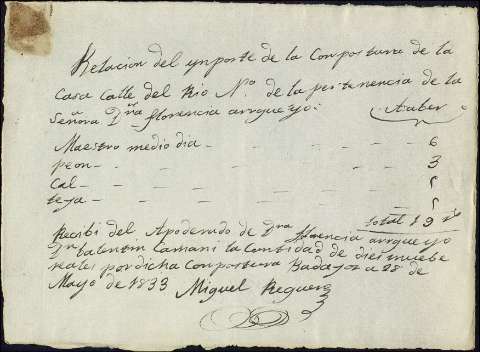 Relacion del ynporte de la Conpostura de la
Casa Calle del Rio Nº. de la pertenencia de la
Señora Dña florencia arrgueyo: Aaber
Maestro medio dia - - - - - - 6
peon - - - - - - - 3
Cal - - - - - - - 5
teja - - - - - - - 5
total 19 rs
Recibi del Apoderado de Dña florencia arrgueyo
Dn balentin Camani la Cantidad de diez nuebe
reales por dicha Conpostura Badajoz a 28 de
Mayo de 1833 Miguel Reguera